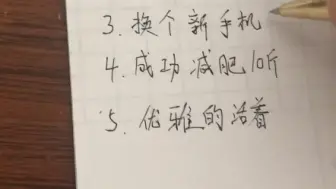 3. 换个新手机
4. 成功减肥10斤
5. 优雅的活着